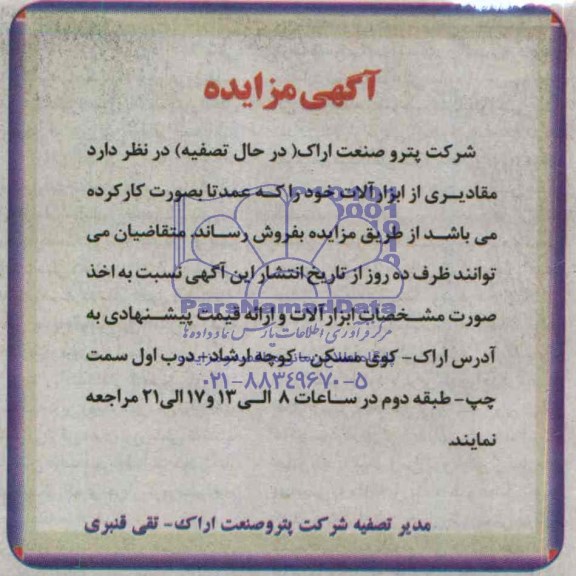 آگهی مزایده
شرکت پترو صنعت اراک( در حال تصفیه) در نظر دارد
مقادیری از ابزارآلات خود را که عمدتا بصورت کارکرده
می باشد از طریق مزایده بفروش رساند، متقاضیان می
توانند ظرف ده روز از تاریخ انتشار این آگهی نسبت به اخذ
صورت مشخصات ابزارآلات و ارائه قیمت پیشنهادی به
ParsNamadData
مرکز فرآوری اطلاعات پارس نماد داده‌ها
آدرس اراک- کوی مسکن - کوچه ارشاد- درب اول سمت
۰۲۱-۸۸۳۴۹۶۷۰-۵
چپ- طبقه دوم در ساعات ۸ الی ۱۳ و ۱۷ الی ۲۱ مراجعه
نمایند.
مدیر تصفیه شرکت پتروصنعت اراک- تقی قنبری